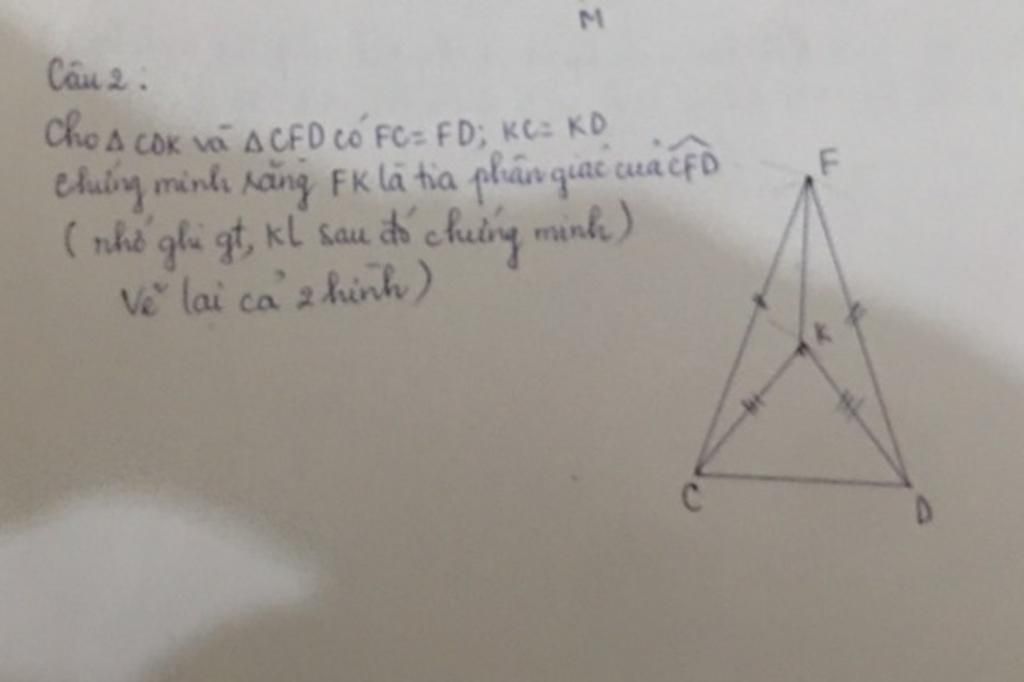 M
Câu 2:
Cho Δ CDK và Δ CFD có FC = FD; KC = KD
Chứng minh rằng FK là tia phân giác của CFD
(nhớ ghi gt, KL sau đó chứng minh)
Vẽ lại cả 2 hình)
F
K
C
D